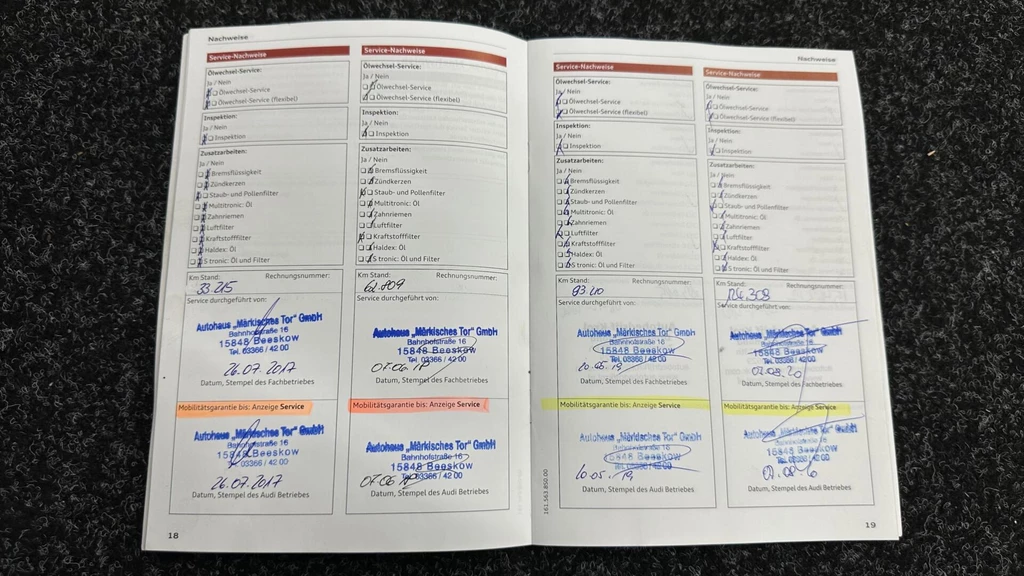 Nachweise
Service-Nachweise
Ölwechsel-Service:
Ja / Nein
Ölwechsel-Service
Ölwechsel-Service (flexibel)
Inspektion:
Ja / Nein
Inspektion
Zusatzarbeiten:
Ja / Nein
Bremsflüssigkeit
Zündkerzen
Staub- und Pollenfilter
Multitronic: Öl
Zahnriemen
Luftfilter
Kraftstofffilter
Haldex: Öl
S tronic: Öl und Filter
Km Stand: Rechnungsnummer:
33.215
Service durchgeführt von:
Autohaus „Märkisches Tor" GmbH
Bahnhofstraße 16
15848 Beeskow
Tel. 03366 / 42 00
26.07.2017
Datum, Stempel des Fachbetriebes
Mobilitätsgarantie bis: Anzeige Service
Autohaus „Märkisches Tor" GmbH
Bahnhofstraße 16
15848 Beeskow
Tel. 03366 / 42 00
26.07.2017
Datum, Stempel des Audi Betriebes
18
Service-Nachweise
Ölwechsel-Service:
Ja / Nein
Ölwechsel-Service
Ölwechsel-Service (flexibel)
Inspektion:
Ja / Nein
Inspektion
Zusatzarbeiten:
Ja / Nein
Bremsflüssigkeit
Zündkerzen
Staub- und Pollenfilter
Multitronic: Öl
Zahnriemen
Luftfilter
Kraftstofffilter
Haldex: Öl
S tronic: Öl und Filter
Km Stand: Rechnungsnummer:
62.809
Service durchgeführt von:
Autohaus „Märkisches Tor" GmbH
Bahnhofstraße 16
15848 Beeskow
Tel. 03366 / 42 00
07.06.18
Datum, Stempel des Fachbetriebes
Mobilitätsgarantie bis: Anzeige Service
Autohaus „Märkisches Tor" GmbH
Bahnhofstraße 16
15848 Beeskow
Tel. 03366 / 42 00
07.06.18
Datum, Stempel des Audi Betriebes
Nachweise
Service-Nachweise
Ölwechsel-Service:
Ja / Nein
Ölwechsel-Service
Ölwechsel-Service (flexibel)
Inspektion:
Ja / Nein
Inspektion
Zusatzarbeiten:
Ja / Nein
Bremsflüssigkeit
Zündkerzen
Staub- und Pollenfilter
Multitronic: Öl
Zahnriemen
Luftfilter
Kraftstofffilter
Haldex: Öl
S tronic: Öl und Filter
Km Stand: Rechnungsnummer:
93.210
Service durchgeführt von:
Autohaus „Märkisches Tor" GmbH
Bahnhofstraße 16
15848 Beeskow
Tel. 03366 / 42 00
20.05.19
Datum, Stempel des Fachbetriebes
Mobilitätsgarantie bis: Anzeige Service
Autohaus „Märkisches Tor" GmbH
Bahnhofstraße 16
15848 Beeskow
Tel. 03366 / 42 00
20.05.19
Datum, Stempel des Audi Betriebes
161.563.850.00
Service-Nachweise
Ölwechsel-Service:
Ja / Nein
Ölwechsel-Service
Ölwechsel-Service (flexibel)
Inspektion:
Ja / Nein
Inspektion
Zusatzarbeiten:
Ja / Nein
Bremsflüssigkeit
Zündkerzen
Staub- und Pollenfilter
Multitronic: Öl
Zahnriemen
Luftfilter
Kraftstofffilter
Haldex: Öl
S tronic: Öl und Filter
Km Stand: Rechnungsnummer:
Service durchgeführt von:
Autohaus „Märkisches Tor" GmbH
Bahnhofstraße 16
15848 Beeskow
Tel. 03366 / 42 00
Datum, Stempel des Fachbetriebes
Mobilitätsgarantie bis: Anzeige Service
Autohaus „Märkisches Tor" GmbH
Bahnhofstraße 16
15848 Beeskow
Tel. 03366 / 42 00
Datum, Stempel des Audi Betriebes
19